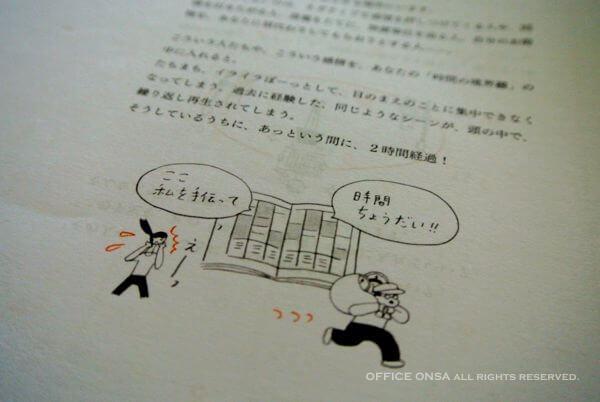 こういう人たちや、こういう感情を、あなたの「時間の境界線」の
中に入れると、
たちまち、イライラぼーっとして、目のまえのことに集中できなく
なってしまう。過去に経験した、同じようなシーンが、頭の中で、
繰り返し再生されてしまう。
そうしているうちに、あっという間に、2時間経過！
ここ
私を手伝って
時間
ちょうだい!!
えーっ
OFFICE ONSA ALL RIGHTS RESERVED.